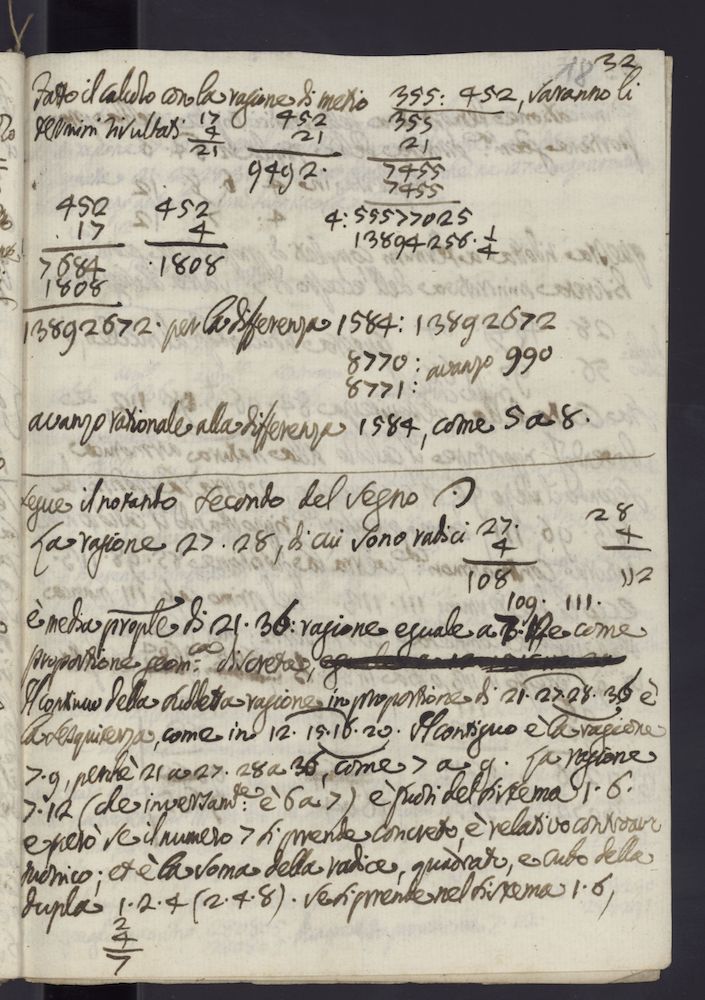 18 32
Fatto il calcolo con la ragione di mezio 355: 452, saranno li
termini risultati 17 452 355
4 21 21
21 9492. 7455
7455
452 452 4: 55577025
17 4 13894256. 1/4
7684 1808
1808
13892672. per la differenza 1584: 13892672
8770: avanzo 990
8771:
avanzo rationale alla differenza 1584, come 5 a 8.
Segue il notando secondo del segno
La ragione 27. 28, di cui sono radici 27. 28
4 4
108 112
109. 111.
è media prople di 21. 36: ragione eguale a 7. 12 e come
proportione geom:ca discreta,
Il continuo della suddetta ragione in proportione di 21. 27. 28. 36 è
la sesquiterza, come in 12. 15. 16. 20. Il contiguo è la ragione
7. 9, perchè 21 a 27. 28 a 36, come 7 a 9. La ragione
7. 12 (che inversamte è 6 a 7) è fuori del sistema 1. 6.
e però se il numero 7 si prende concreto, è relativo controar
monico; et è la soma della radice, quadrato, e cubo della
dupla 1. 2. 4 (2. 4. 8). se si prende nel sistema 1. 6,
2
4
7